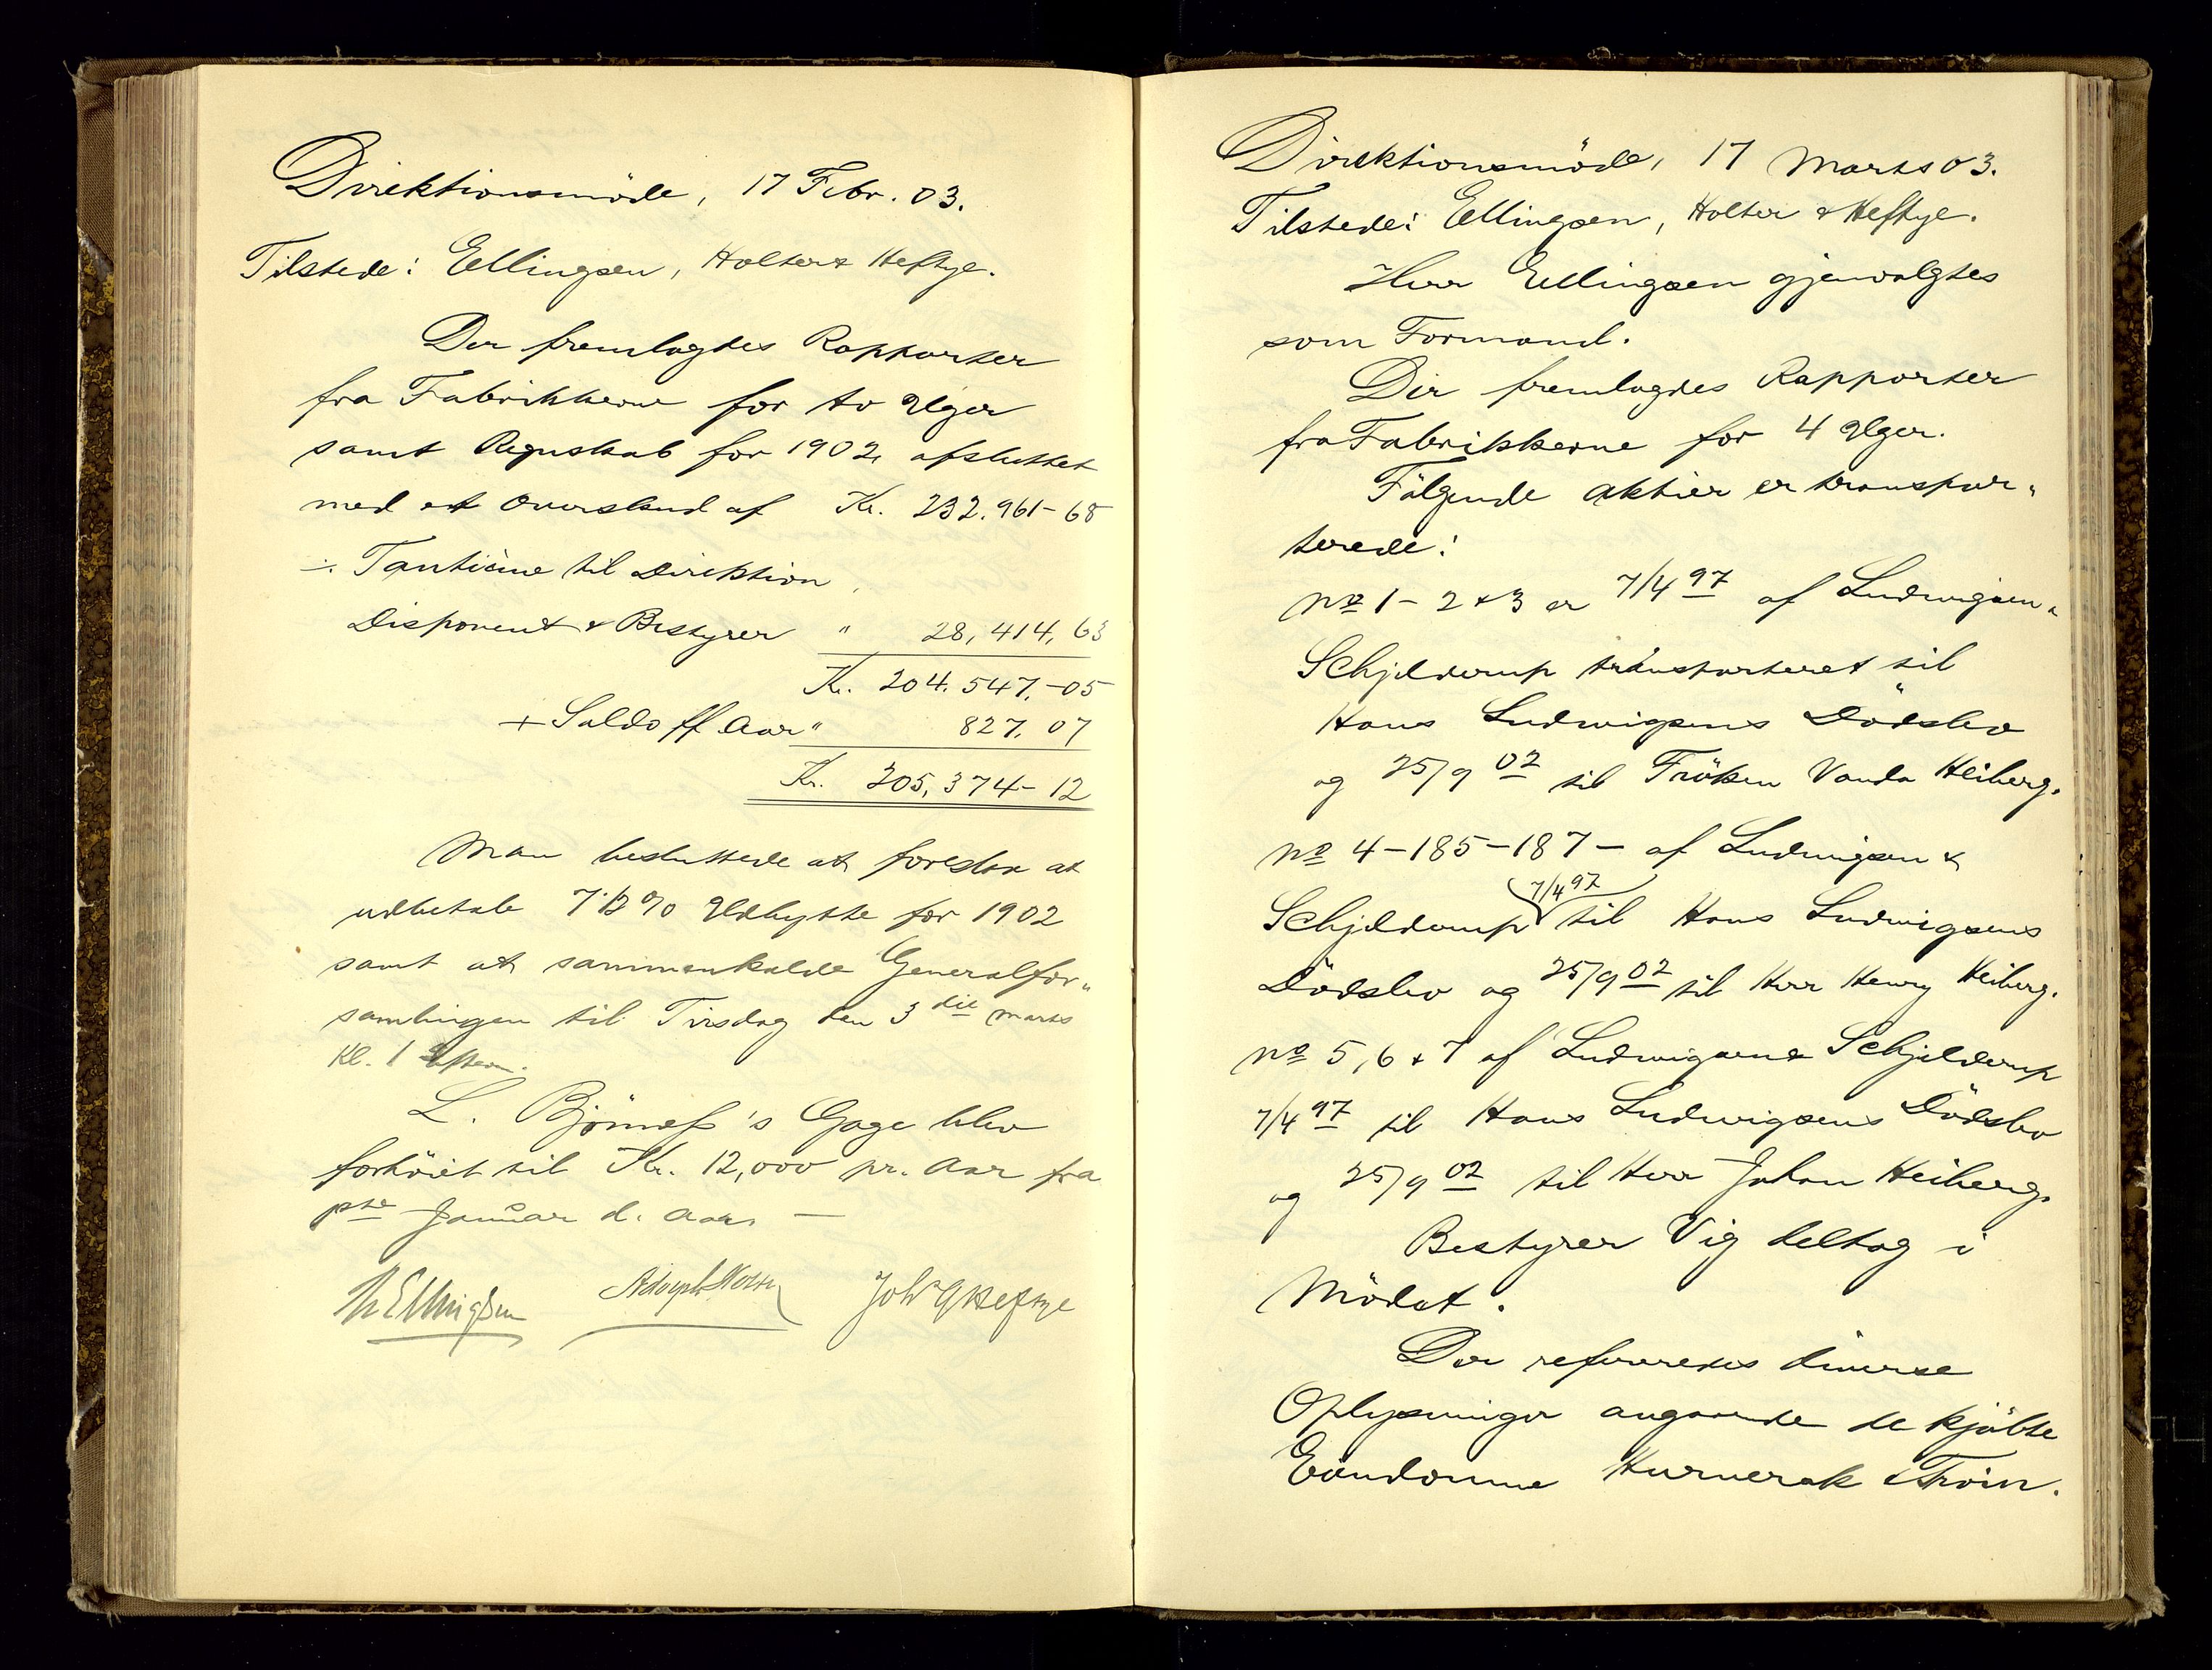 Direktionsmöde, 17 Febr. 03.
Tilstede: Ellingsen, Holter & Heftye.
Der fremlagdes Rapporter
fra Fabrikkerne for to Uger
samt Regnskab for 1902, afsluttet
med et Overskud af Kr. 232.961-68
÷ Tantième til Direktion,
Disponent & Bestyrer " 28,414,63
Kr. 204.547,-05
+ Saldo ff Aar " 827,07
Kr. 205,374-12
Man besluttede at foreslaa at
udbetale 7 1/2 % Udbytte for 1902
samt at sammenkalde Generalfor„
samlingen til Tirsdag den 3die Marts
Kl. 1 Efterm.
L. Björness's Gage blev
forhöiet til Kr. 12,000 pr. Aar fra
1ste Januar d. Aar. —
Ths Ellingsen Adolph Holter Joh G Heftye
Direktionsmöde, 17 Marts 03.
Tilstede: Ellingsen, Holter & Heftye.
Herr Ellingsen gjenvalgtes
som Formand.
Der fremlagdes Rapporter
fra Fabrikkerne for 4 Uger.
Fölgende Aktier er transpor„
terede:
No 1-2 & 3 er 7/4 97 af Ludwigsen &
Schjelderup transporteret til
Hans Ludwigsens Dödsbo
og 25/9 02 til Fröken Vanda Heiberg.
No 4-185-187- af Ludwigsen &
7/4 97
Schjelderup til Hans Ludwigsens
Dödsbo og 25/9 02 til Herr Henry Heiberg.
No 5,6 & 7 af Ludwigsen & Schjelderup
7/4 97 til Hans Ludwigsens Dödsbo
og 25/9 02 til Herr Johan Heiberg.
Bestyrer Vig deltog i
Mödet.
Der refereredes diverse
Oplysninger angaaende de kjöbte
Eiendomme Hurverak & Troin.